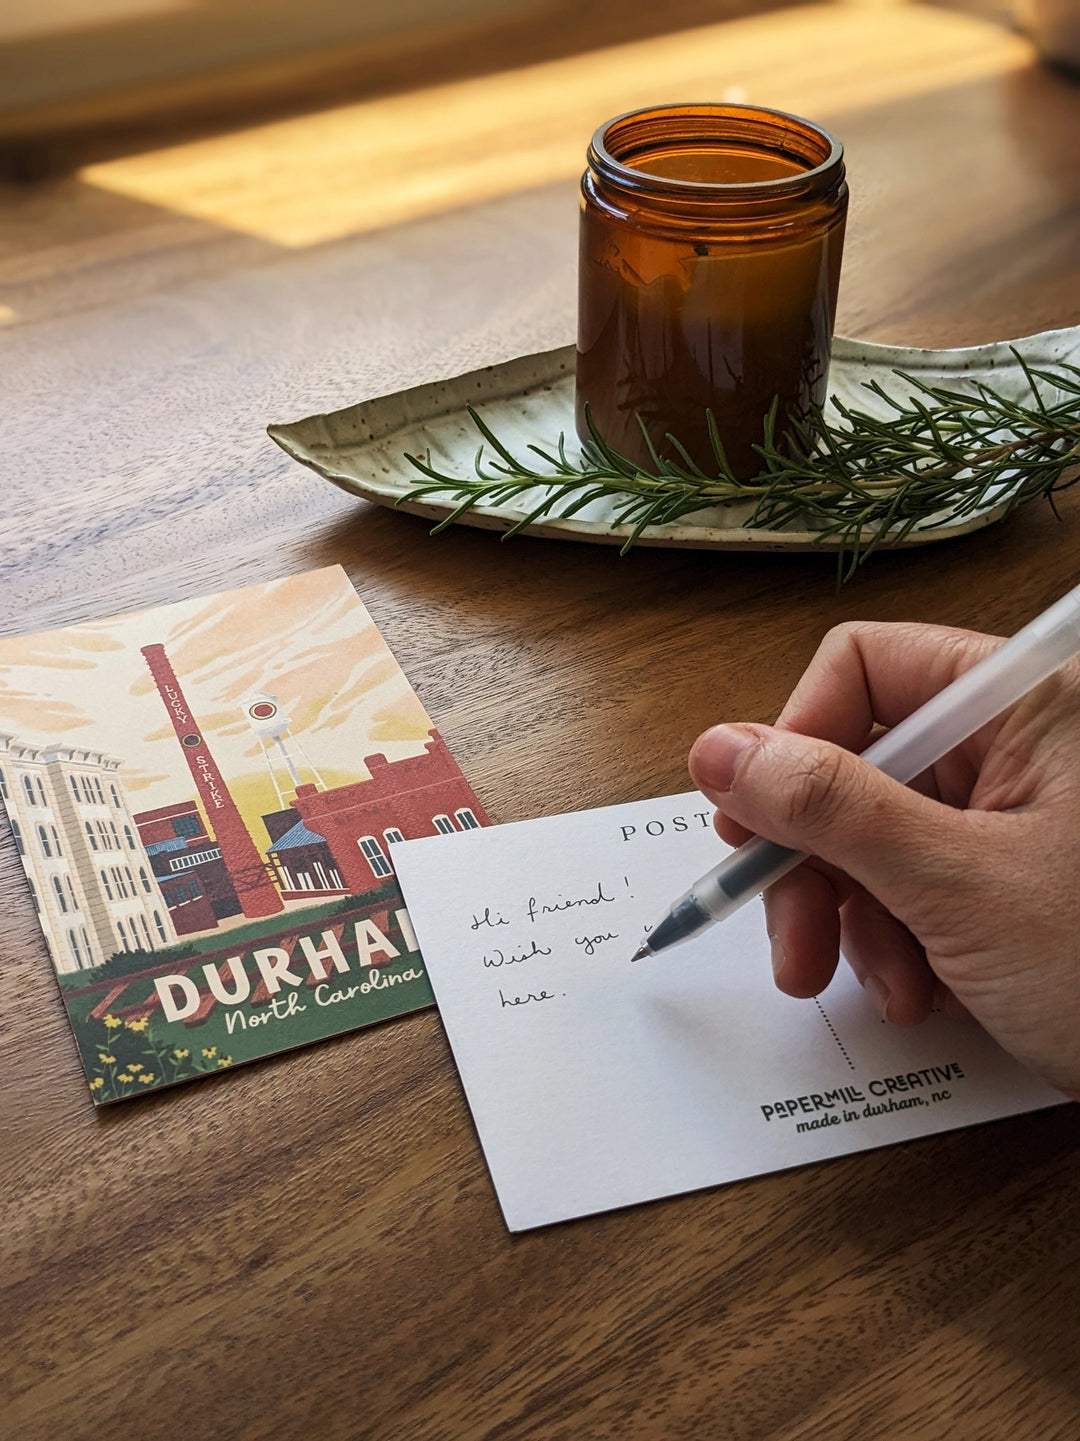 LUCKY STRIKE
DURHAM
North Carolina
POST
Hi friend!
Wish you
here.
PAPERMILL CREATIVE
made in durham, nc